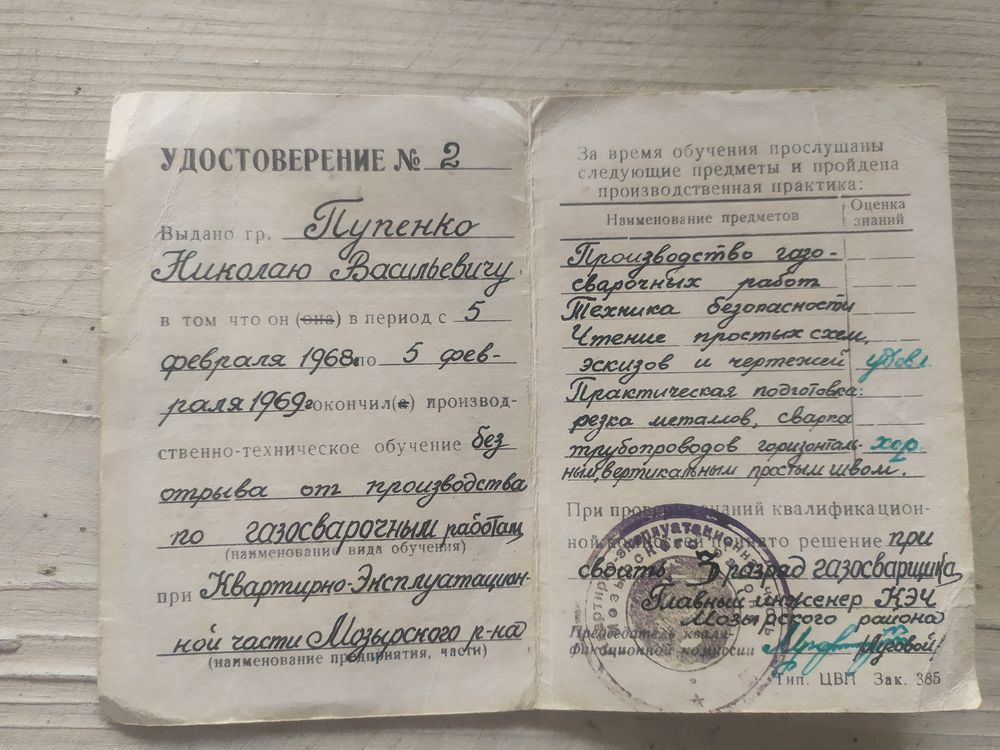 УДОСТОВЕРЕНИЕ № 2
Выдано гр. Тупенко
Николаю Васильевичу
в том что он (она) в период с 5
февраля 1968г по 5 фев-
раля 1969г окончил(а) производ-
ственно-техническое обучение без
отрыва от производства
по газосварочным работам
(наименование вида обучения)
при Квартирно-Эксплуатацион-
ной части Мозырского р-на
(наименование предприятия, части)
За время обучения прослушаны
следующие предметы и пройдена
производственная практика:
Наименование предметов
Оценка
знаний
Производство газо-
сварочных работ
Техника безопасности
Чтение простых схем,
эскизов и чертежей удовл.
Практическая подготовка:
резка металлов, сварка
трубопроводов горизонталь- хор.
ным, вертикальным простым швом.
При проверке знаний квалификацион-
ной комиссией принято решение при
своить 3 разряд газосварщика
Главный инженер КЭЧ
Мозырского района
Председатель квали-
фикационной комиссии /Луговой/
Тип. ЦВП Зак. 385